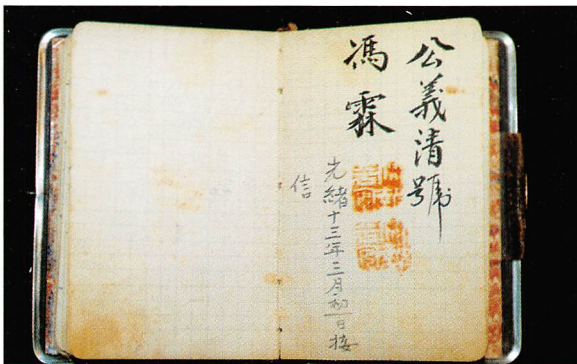 公義清號
馮霖
光緒十三年三月初一日接
信